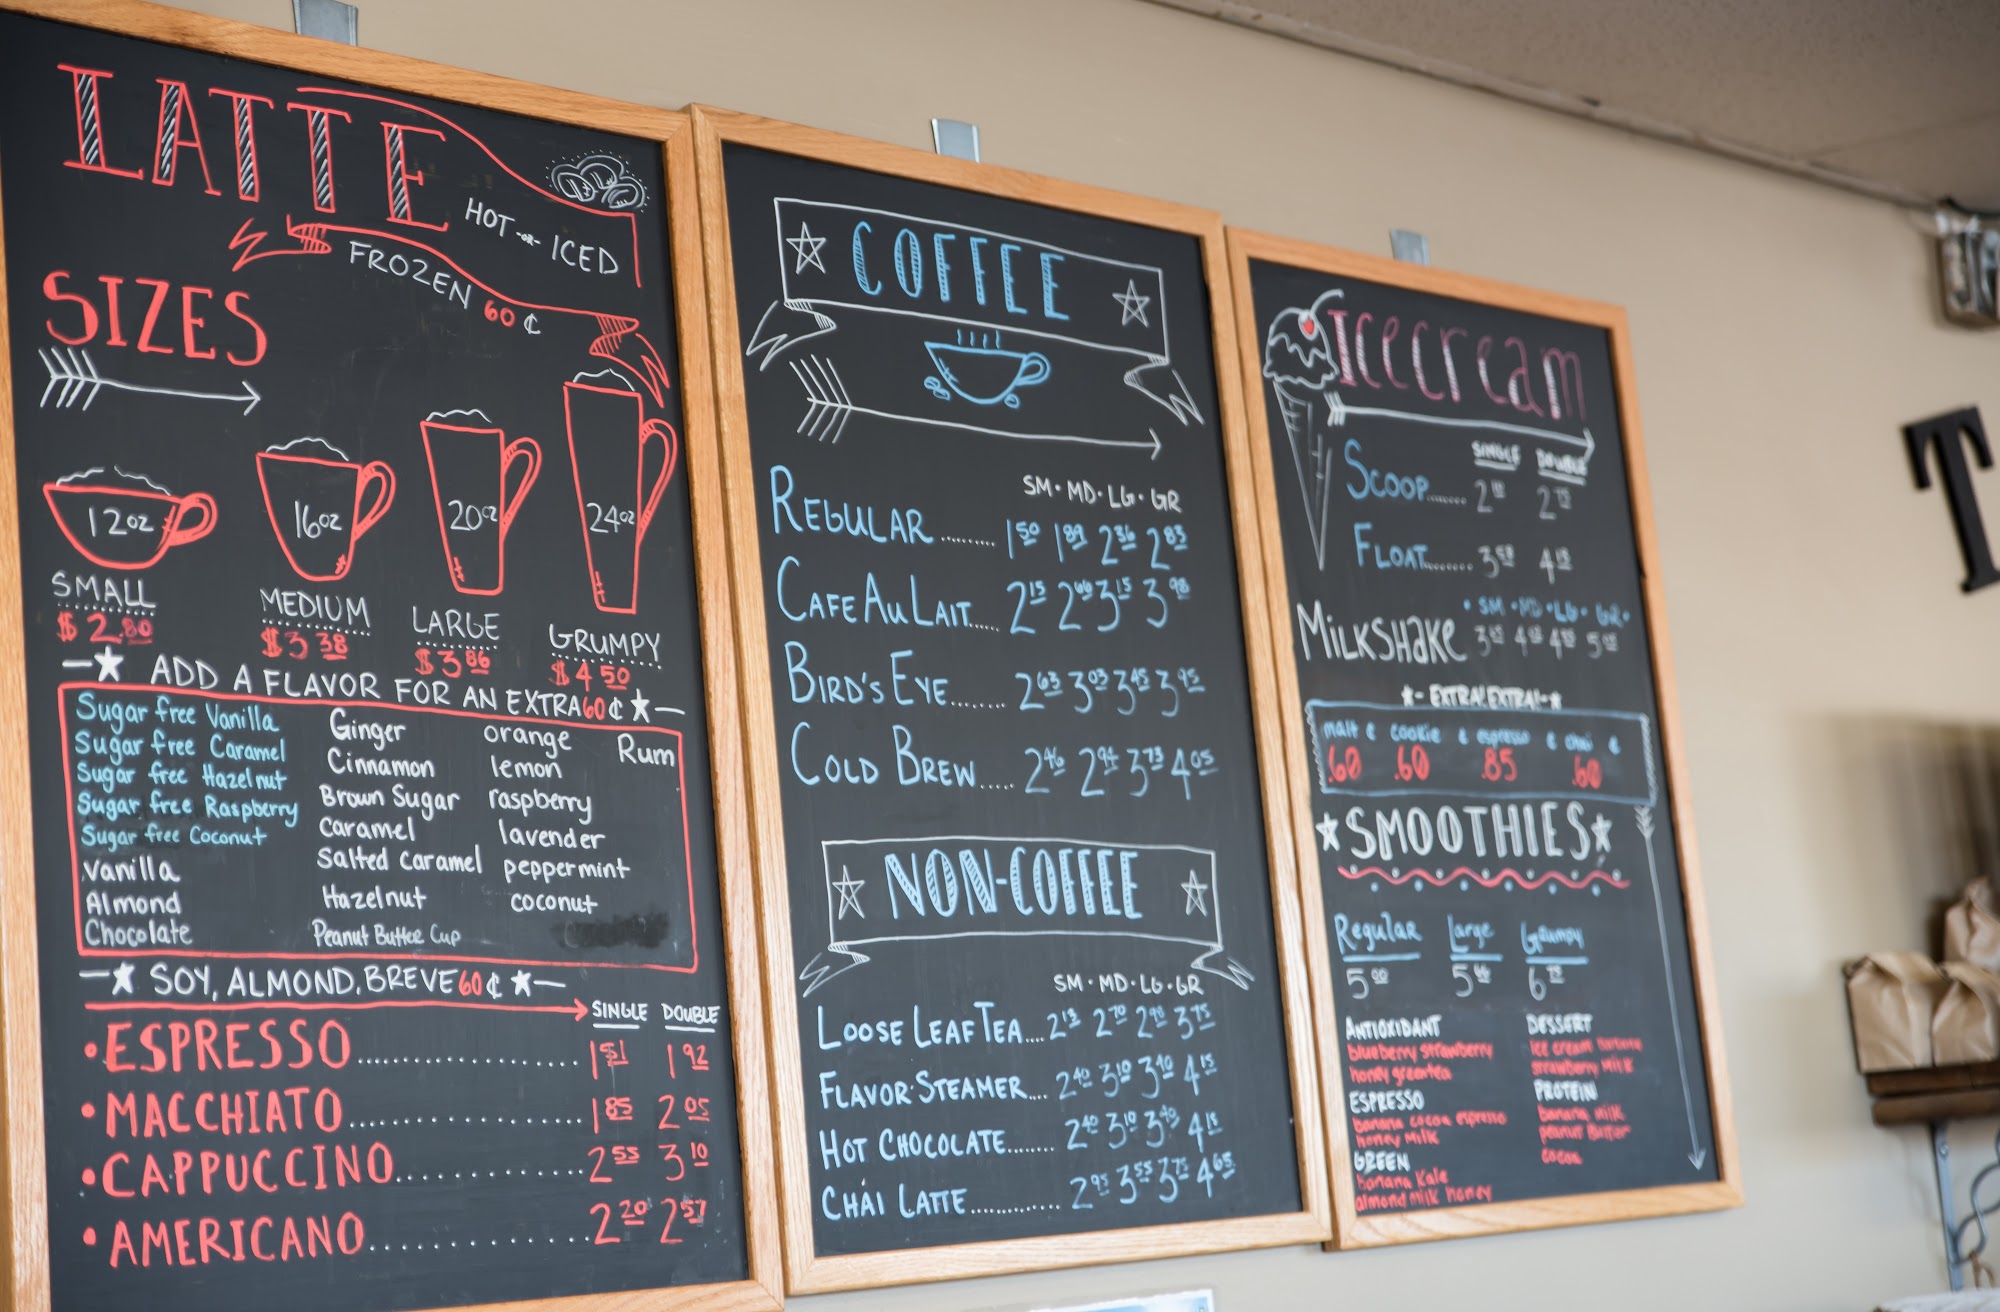 LATTE
HOT -or- ICED
FROZEN 60¢
SIZES
12oz
16oz
20oz
24oz
SMALL
$2.80
MEDIUM
$3.38
LARGE
$3.86
GRUMPY
$4.50
ADD A FLAVOR FOR AN EXTRA 60¢
Sugar free Vanilla
Sugar free Caramel
Sugar free Hazelnut
Sugar free Raspberry
Sugar free Coconut
Vanilla
Almond
Chocolate
Ginger
Cinnamon
Brown Sugar
Caramel
Salted Caramel
Hazelnut
Peanut Butter Cup
orange
lemon
raspberry
lavender
peppermint
coconut
Rum
SOY, ALMOND, BREVE 60¢
SINGLE DOUBLE
•ESPRESSO.................... 1.51 1.92
•MACCHIATO.................... 1.85 2.05
•CAPPUCCINO................ 2.55 3.10
•AMERICANO................ 2.20 2.57
COFFEE
SM • MD • LG • GR
REGULAR.......... 1.50 1.89 2.36 2.83
CAFE AU LAIT...... 2.15 2.60 3.15 3.98
BIRD'S EYE........ 2.63 3.03 3.45 3.95
COLD BREW..... 2.46 2.94 3.73 4.05
NON-COFFEE
SM • MD • LG • GR
LOOSE LEAF TEA.... 2.13 2.70 2.90 3.75
FLAVOR STEAMER.... 2.40 3.10 3.40 4.15
HOT CHOCOLATE....... 2.40 3.10 3.40 4.15
CHAI LATTE............. 2.95 3.55 3.75 4.65
Icecream
SINGLE DOUBLE
SCOOP....... 2 2.75
FLOAT........ 3.58 4
MILKSHAKE
• SM • MD • LG • GR •
EXTRA! EXTRA!
malt ¢ cookie ¢ espresso ¢ chai ¢
.60 .60 .85 .60
SMOOTHIES
Regular Large Grumpy
5.00 5 6
ANTIOXIDANT
blueberry strawberry
honey greentea
ESPRESSO
banana cocoa espresso
honey milk
GREEN
banana kale
almond milk honey
DESSERT
ice cream banana
strawberry milk
PROTEIN
banana milk
peanut butter
cocoa
T